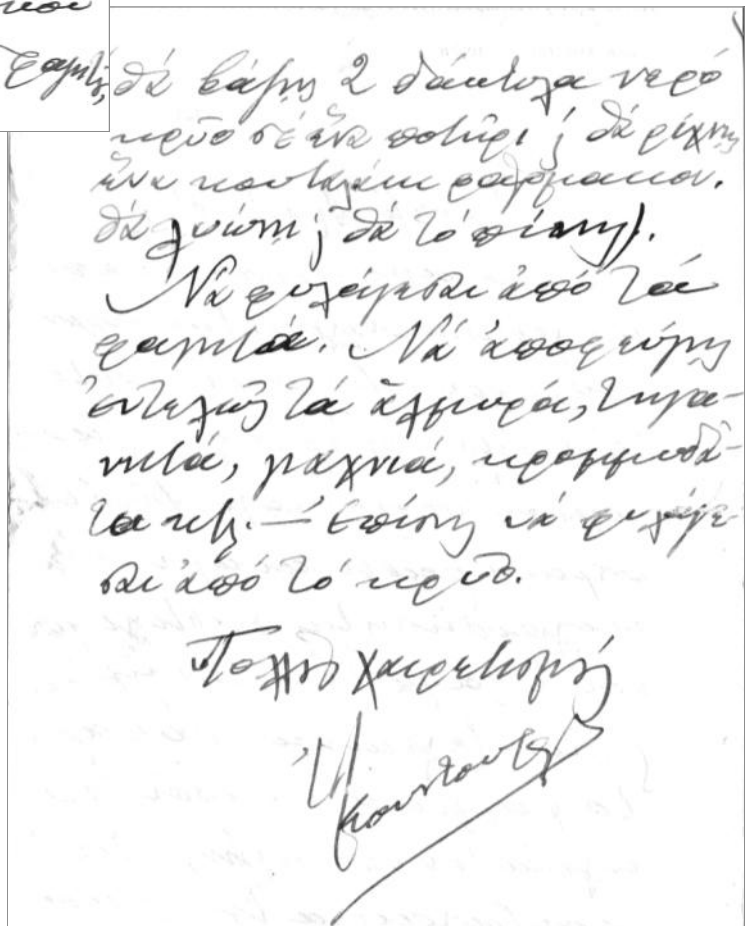 θὰ βάζῃς 2 δάκτυλα νερό
κρύο σὲ ἕνα ποτήρι ϗ θὰ ρίχνῃς
ἕνα κουταλάκι φάρμακον.
θὰ λυώνῃ ϗ θὰ τὸ πίνῃς).
Νὰ φυλάγεσαι ἀπὸ τὰ
φαγητά. Νὰ ἀποφεύγῃς
ἐντελῶς τὰ ἁλμυρά, τηγα-
νιτά, γιαχνιά, κρεμμυδά-
τα κτλ. — Ἐπίσης νὰ φυλάγε-
σαι ἀπὸ τὸ κρύο.
Πολλοὺς χαιρετισμούς